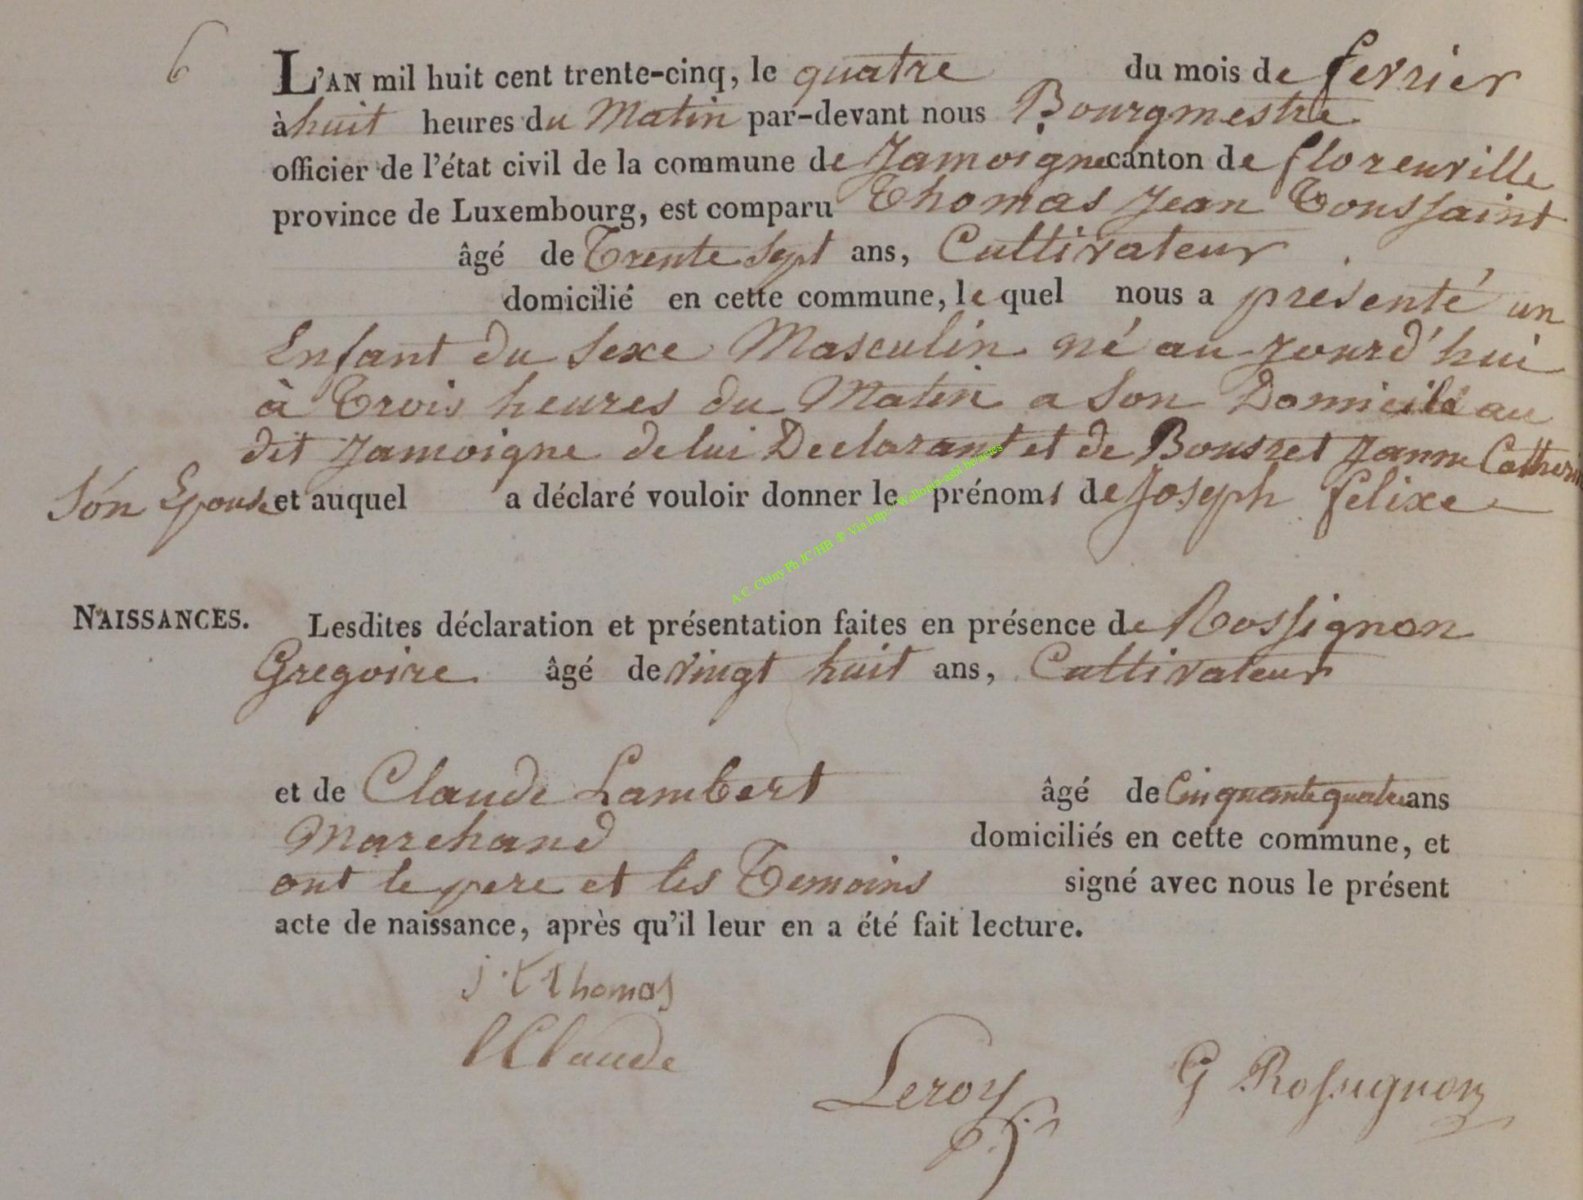 6
L'AN mil huit cent trente-cinq, le quatre du mois de fevrier
à huit heures du Matin par-devant nous Bourgmestre
officier de l'état civil de la commune de Jamoigne canton de florenville
province de Luxembourg, est comparu Thomas Jean Toussaint
âgé de Trente Sept ans, Cultivateur
domicilié en cette commune, le quel nous a présenté un
Enfant du Sexe Masculin né au jourd'hui
à Trois heures du Matin a Son Domicile au
dit Jamoigne de lui Declarant et de Bousret Janne Catherine
Son Epouse et auquel a déclaré vouloir donner le prénoms de Joseph felixe
NAISSANCES. Lesdites déclaration et présentation faites en présence de Rossignon
Gregoire âgé de vingt huit ans, Cultivateur
et de Claude Lambert âgé de Cinquante quatre ans
Marchand domiciliés en cette commune, et
ont le pere et les Temoins signé avec nous le présent
acte de naissance, après qu'il leur en a été fait lecture.
j t thomas
l Claude
Leroy G Rossignon